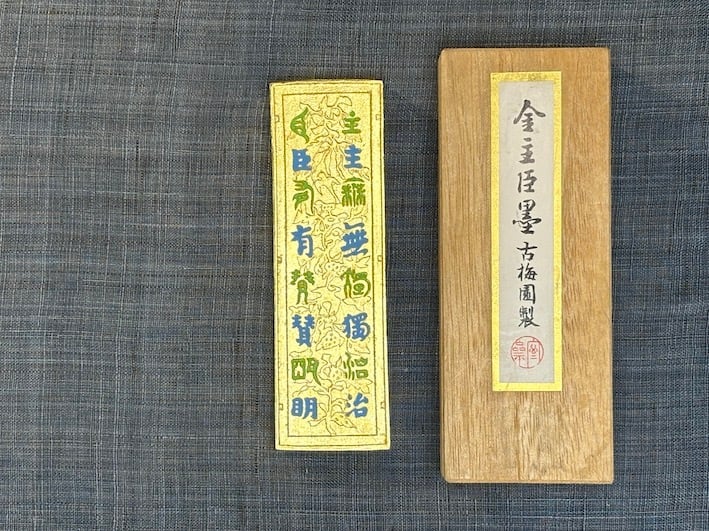 金主臣墨 古梅園製
主主無無獨獨治治
臣臣有有賛賛明明